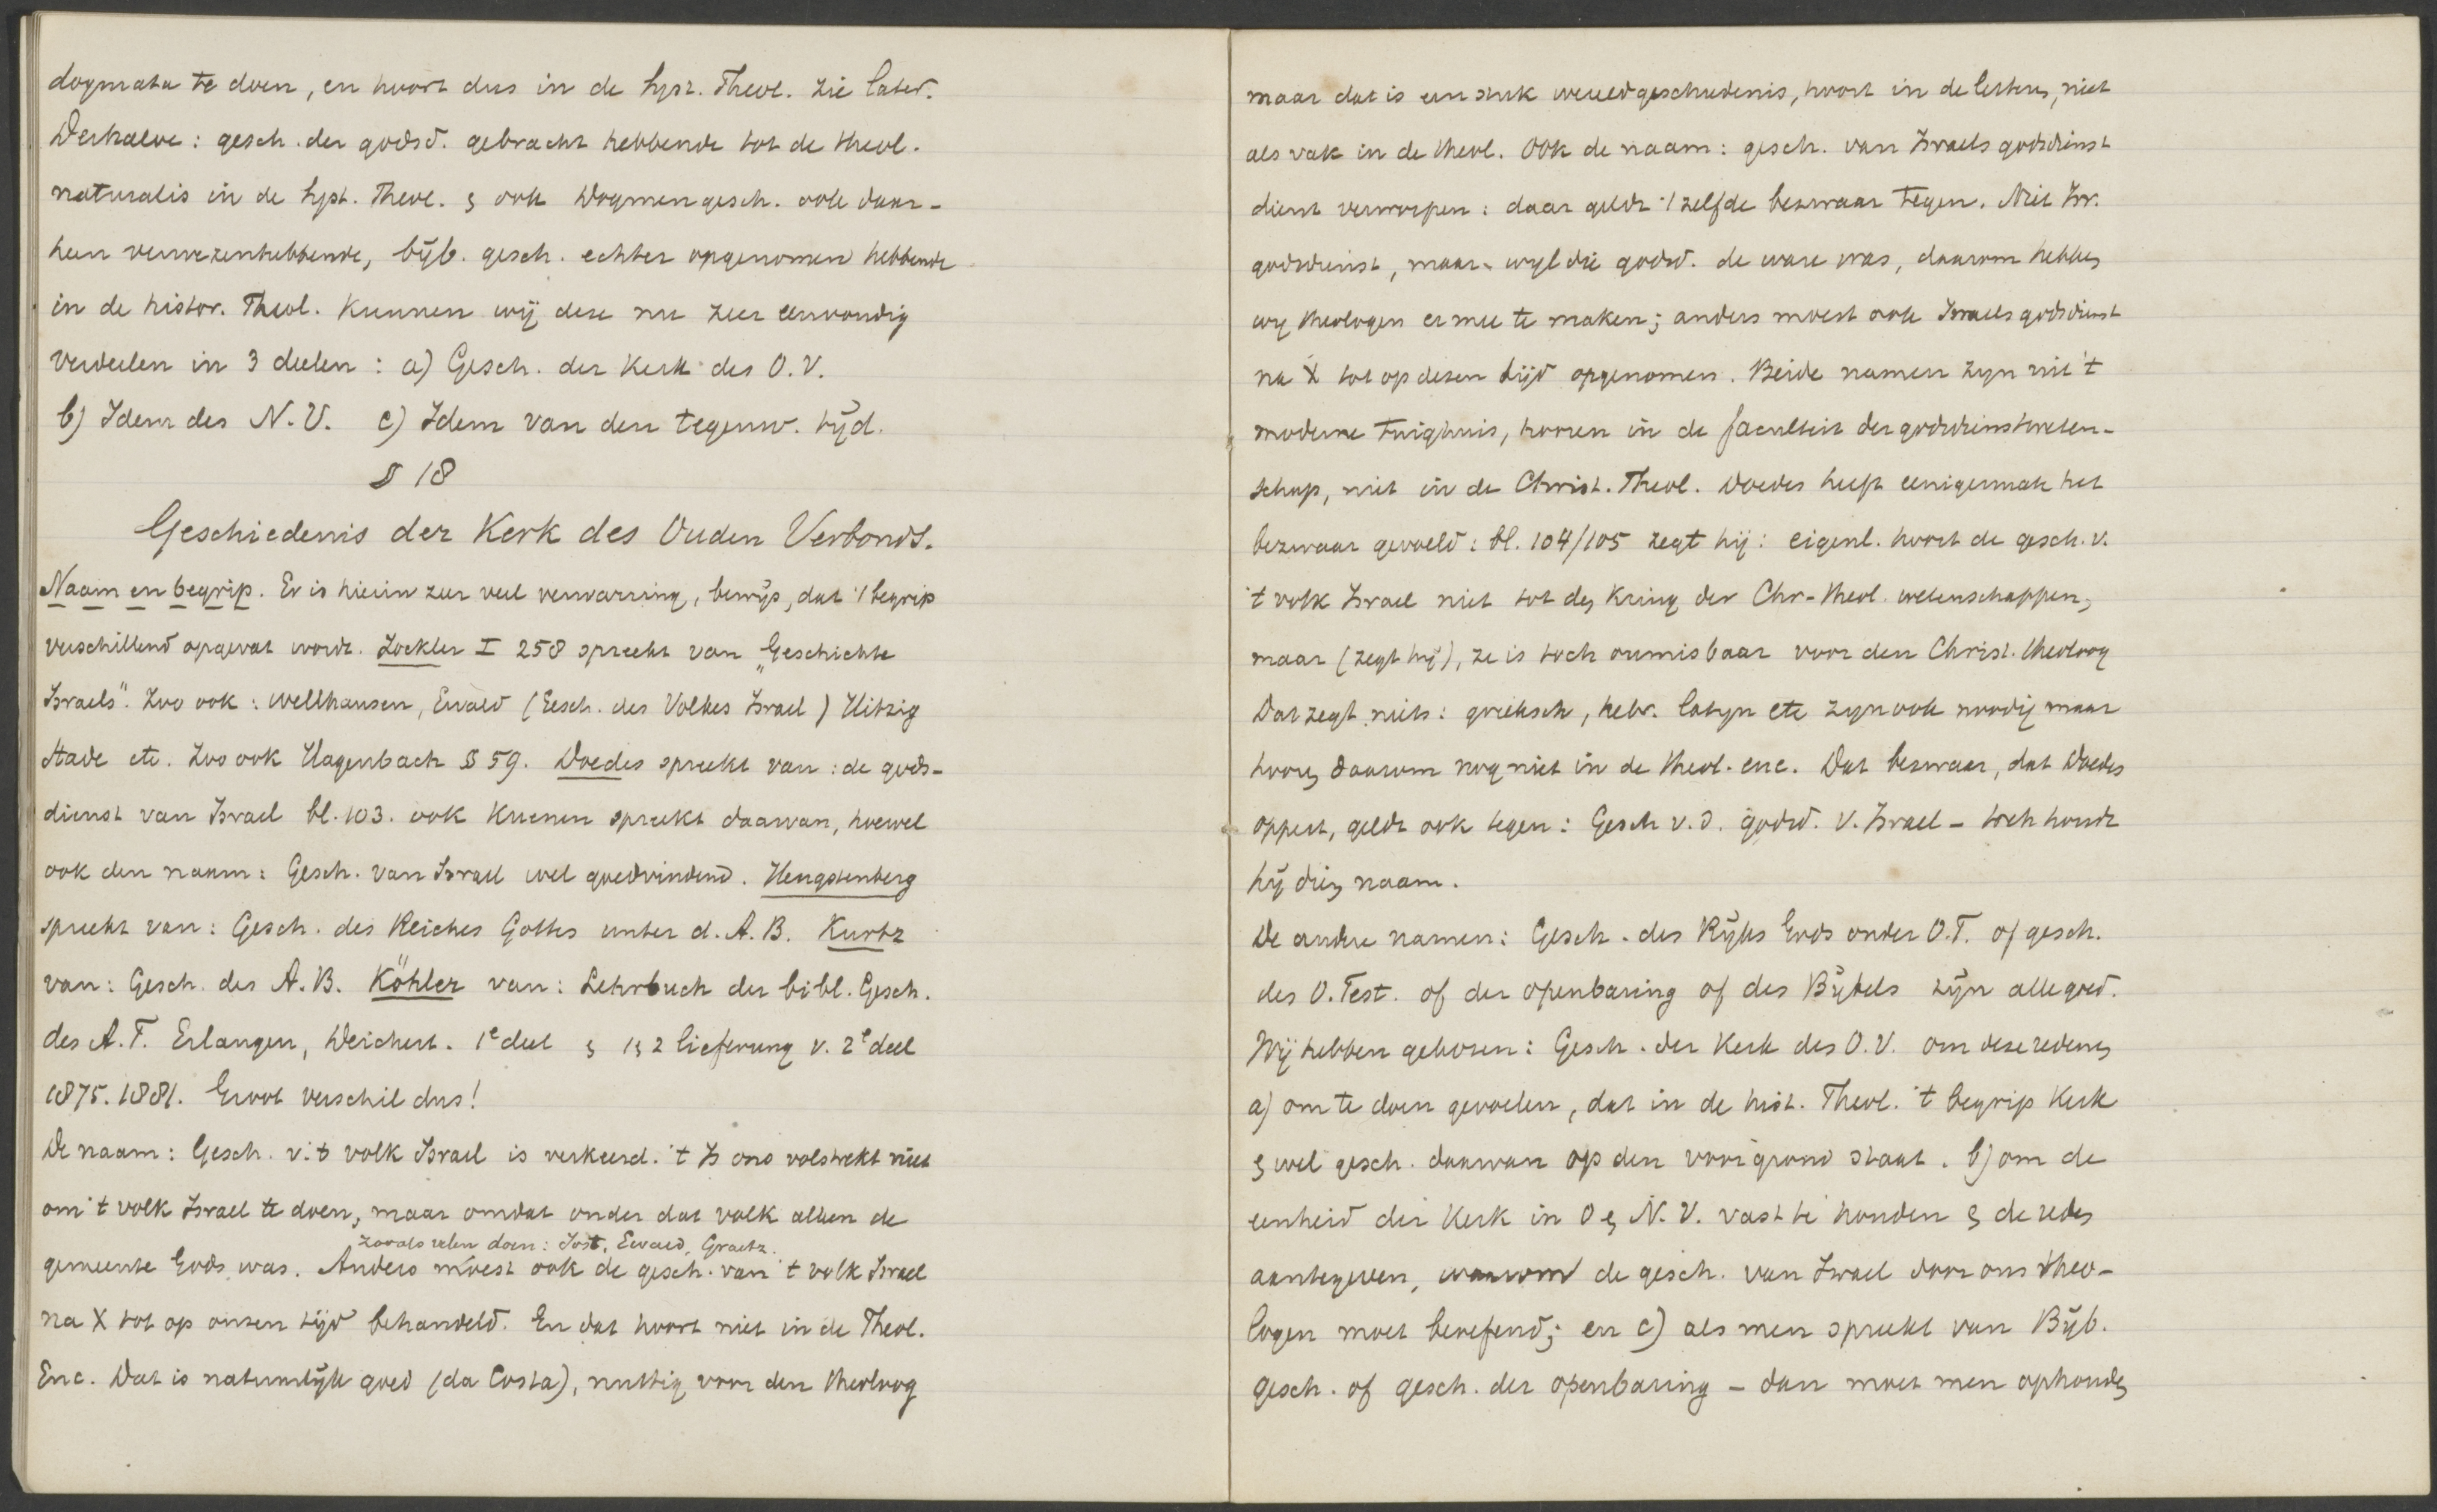 dogmata te doen, en hoort dus in de syst. Theol. zie later.
Derhalve: gesch. der godsd. gebracht hebbende tot de theol.
naturalis in de syst. Theol. & ook Dogmengesch. ook daar-
heen verwezenhebbende, bijb. gesch. echter opgenomen hebbende
in de histor. Theol. kunnen wij deze nu zeer eenvoudig
verdeelen in 3 deelen: a) Gesch. der Kerk des O.V.
b) Idem des N.V. c) Idem van den tegenw. tijd.
§ 18
Geschiedenis der Kerk des Ouden Verbonds.
Naam en begrip. Er is hierin zeer veel verwarring, bewijs, dat 't begrip
verschillend opgevat wordt. Zöckler I 258 spreekt van „Geschichte
Israels". Zoo ook: Wellhausen, Ewald (Gesch. des Volkes Israel) Hitzig
Stade etc. Zoo ook Hagenbach § 59. Doedes spreekt van: de gods-
dienst van Israel bl. 103. ook Kuenen spreekt daarvan, hoewel
ook den naam: Gesch. van Israel wel goedvindend. Hengstenberg
spreekt van: Gesch. des Reiches Gottes unter d. A.B. Kurtz
van: Gesch. des A.B. Köhler van: Lehrbuch der bibl. Gesch.
des A.T. Erlangen, Deichert. 1e deel & 1 & 2 lieferung v. 2e deel
1875. 1881. Groot verschil dus!
De naam: Gesch. v. 't volk Israel is verkeerd. 't Is ons volstrekt niet
om 't volk Israel te doen, maar omdat onder dat volk alleen de
zooals velen doen: Jost, Ewald, Graetz.
gemeente Gods was. Anders moest ook de gesch. van 't volk Israel
na X tot op onzen tijd behandeld. En dat hoort niet in de Theol.
Enc. Dat is natuurlijk goed (da Costa), nuttig voor den theoloog
maar dat is een stuk wereldgeschiedenis, hoort in de letteren, niet
als vak in de theol. Ook de naam: gesch. van Israels godsdienst
dient verworpen: daar geldt 't zelfde bezwaar tegen. Niet Isr.
godsdienst, maar wijl die godsd. de ware was, daarom hebben
wij theologen er mee te maken; anders moest ook Israels godsdienst
na X tot op dezen tijd opgenomen. Beide namen zijn uit 't
moderne tuighuis, hooren in de faculteit der godsdienstweten-
schap, niet in de Christ. Theol. Doedes heeft eenigermate het
bezwaar gevoeld: bl. 104/105 zegt hij: eigenl. hoort de gesch. v.
't volk Israel niet tot den kring der Chr-theol. wetenschappen,
maar (zegt hij), ze is toch onmisbaar voor den Christ. theoloog
Dat zegt niets: grieksch, hebr. latijn etc zijn ook noodig maar
hooren daarom nog niet in de theol. enc. Dat bezwaar, dat Doedes
oppert, geldt ook tegen: Gesch v.d. godsd. v. Israel - toch houdt
hij dien naam.
De andre namen: Gesch. des Rijks Gods onder O.T. of gesch.
des O. Test. of der openbaring of des Bijbels zijn alle goed.
Wij hebben gekozen: Gesch. der Kerk des O.V. om deze redenen
a) om te doen gevoelen, dat in de hist. Theol. 't begrip Kerk
& wel gesch. daarvan op den voorgrond staat. b) om de
eenheid der Kerk in O & N.V. vast te houden & de reden
aantegeven, waarom de gesch. van Israel door ons theo-
logen moet beoefend; en c) als men spreekt van Bijb.
gesch. of gesch. der openbaring - dan moet men ophouden